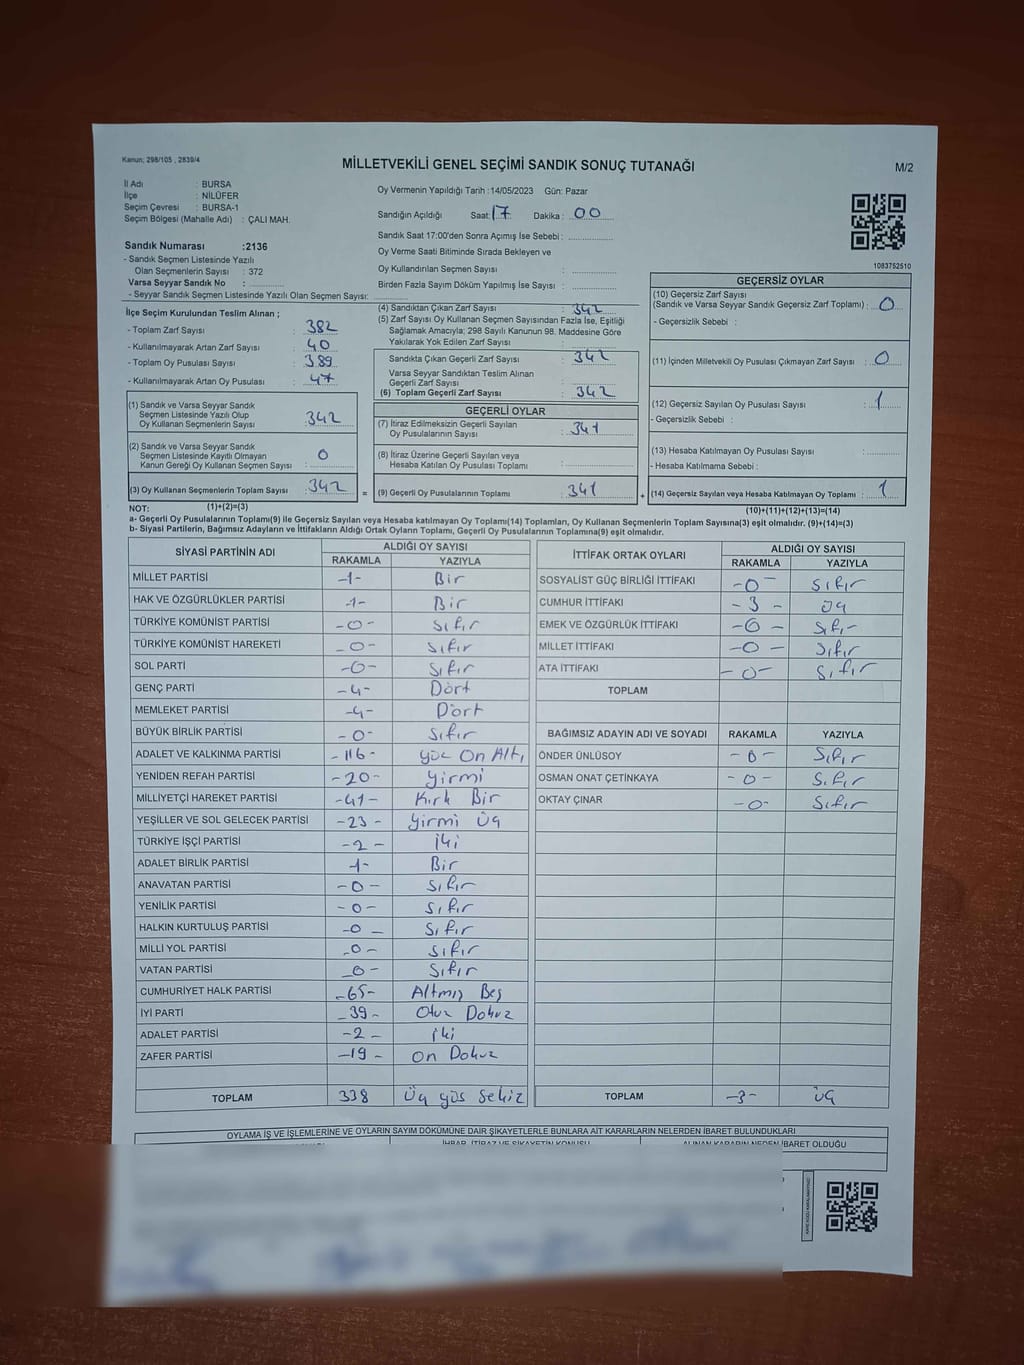 Kanun; 298/105 , 2839/4
MİLLETVEKİLİ GENEL SEÇİMİ SANDIK SONUÇ TUTANAĞI
M/2
İl Adı : BURSA
İlçe : NİLÜFER
Seçim Çevresi : BURSA-1
Seçim Bölgesi (Mahalle Adı) : ÇALI MAH.
Sandık Numarası :2136
- Sandık Seçmen Listesinde Yazılı
Olan Seçmenlerin Sayısı : 372
Varsa Seyyar Sandık No :
- Seyyar Sandık Seçmen Listesinde Yazılı Olan Seçmen Sayısı:
Oy Vermenin Yapıldığı Tarih :14/05/2023 Gün: Pazar
Sandığın Açıldığı Saat: 17 Dakika : 00
Sandık Saat 17:00'den Sonra Açımış İse Sebebi :
Oy Verme Saati Bitiminde Sırada Bekleyen ve
Oy Kullandırılan Seçmen Sayısı :
Birden Fazla Sayım Döküm Yapılmış İse Sayısı :
1083752510
İlçe Seçim Kurulundan Teslim Alınan ;
- Toplam Zarf Sayısı : 382
- Kullanılmayarak Artan Zarf Sayısı : 40
- Toplam Oy Pusulası Sayısı : 389
- Kullanılmayarak Artan Oy Pusulası : 47
(1) Sandık ve Varsa Seyyar Sandık
Seçmen Listesinde Yazılı Olup
Oy Kullanan Seçmenlerin Sayısı : 342
(2) Sandık ve Varsa Seyyar Sandık
Seçmen Listesinde Kayıtlı Olmayan
Kanun Gereği Oy Kullanan Seçmen Sayısı : 0
(3) Oy Kullanan Seçmenlerin Toplam Sayısı : 342
(1)+(2)=(3)
(4) Sandıktan Çıkan Zarf Sayısı : 342
(5) Zarf Sayısı Oy Kullanan Seçmen Sayısından Fazla İse, Eşitliği
Sağlamak Amacıyla; 298 Sayılı Kanunun 98. Maddesine Göre
Yakılarak Yok Edilen Zarf Sayısı :
Sandıkta Çıkan Geçerli Zarf Sayısı : 342
Varsa Seyyar Sandıktan Teslim Alınan
Geçerli Zarf Sayısı :
(6) Toplam Geçerli Zarf Sayısı : 342
GEÇERLİ OYLAR
(7) İtiraz Edilmeksizin Geçerli Sayılan
Oy Pusulalarının Sayısı : 341
(8) İtiraz Üzerine Geçerli Sayılan veya
Hesaba Katılan Oy Pusulası Toplamı :
= (9) Geçerli Oy Pusulalarının Toplamı : 341
GEÇERSİZ OYLAR
(10) Geçersiz Zarf Sayısı
(Sandık ve Varsa Seyyar Sandık Geçersiz Zarf Toplamı) : 0
- Geçersizlik Sebebi :
(11) İçinden Milletvekili Oy Pusulası Çıkmayan Zarf Sayısı : 0
(12) Geçersiz Sayılan Oy Pusulası Sayısı : 1
- Geçersizlik Sebebi :
(13) Hesaba Katılmayan Oy Pusulası Sayısı :
- Hesaba Katılmama Sebebi :
+ (14) Geçersiz Sayılan veya Hesaba Katılmayan Oy Toplamı : 1
(10)+(11)+(12)+(13)=(14)
NOT:
a- Geçerli Oy Pusulalarının Toplamı(9) ile Geçersiz Sayılan veya Hesaba katılmayan Oy Toplamı(14) Toplamları, Oy Kullanan Seçmenlerin Toplam Sayısına(3) eşit olmalıdır. (9)+(14)=(3)
b- Siyasi Partilerin, Bağımsız Adayların ve İttifakların Aldığı Ortak Oyların Toplamı, Geçerli Oy Pusulalarının Toplamına(9) eşit olmalıdır.
SİYASİ PARTİNİN ADI ALDIĞI OY SAYISI
RAKAMLA YAZIYLA
MİLLET PARTİSİ -1- Bir
HAK VE ÖZGÜRLÜKLER PARTİSİ -1- Bir
TÜRKİYE KOMÜNİST PARTİSİ -0- Sıfır
TÜRKİYE KOMÜNİST HAREKETİ -0- Sıfır
SOL PARTİ -0- Sıfır
GENÇ PARTİ -4- Dört
MEMLEKET PARTİSİ -4- Dört
BÜYÜK BİRLİK PARTİSİ -0- Sıfır
ADALET VE KALKINMA PARTİSİ -116- yüz On Altı
YENİDEN REFAH PARTİSİ -20- yirmi
MİLLİYETÇİ HAREKET PARTİSİ -41- Kırk Bir
YEŞİLLER VE SOL GELECEK PARTİSİ -23- yirmi üç
TÜRKİYE İŞÇİ PARTİSİ -2- iki
ADALET BİRLİK PARTİSİ -1- Bir
ANAVATAN PARTİSİ -0- Sıfır
YENİLİK PARTİSİ -0- Sıfır
HALKIN KURTULUŞ PARTİSİ -0- Sıfır
MİLLİ YOL PARTİSİ -0- Sıfır
VATAN PARTİSİ -0- Sıfır
CUMHURİYET HALK PARTİSİ -65- Altmış Beş
İYİ PARTİ -39- Otuz Dokuz
ADALET PARTİSİ -2- iki
ZAFER PARTİSİ -19- On Dokuz
TOPLAM 338 Üç yüz Sekiz
İTTİFAK ORTAK OYLARI ALDIĞI OY SAYISI
RAKAMLA YAZIYLA
SOSYALİST GÜÇ BİRLİĞİ İTTİFAKI -0- Sıfır
CUMHUR İTTİFAKI -3- üç
EMEK VE ÖZGÜRLÜK İTTİFAKI -0- Sıfır
MİLLET İTTİFAKI -0- Sıfır
ATA İTTİFAKI -0- Sıfır
TOPLAM
BAĞIMSIZ ADAYIN ADI VE SOYADI RAKAMLA YAZIYLA
ÖNDER ÜNLÜSOY -0- Sıfır
OSMAN ONAT ÇETİNKAYA -0- Sıfır
OKTAY ÇINAR -0- Sıfır
TOPLAM -3- üç
OYLAMA İŞ VE İŞLEMLERİNE VE OYLARIN SAYIM DÖKÜMÜNE DAİR ŞİKAYETLERLE BUNLARA AİT KARARLARIN NELERDEN İBARET BULUNDUKLARI
İHBAR, İTİRAZ VE ŞİKAYETİN KONUSU ALINAN KARARIN NEDEN İBARET OLDUĞU